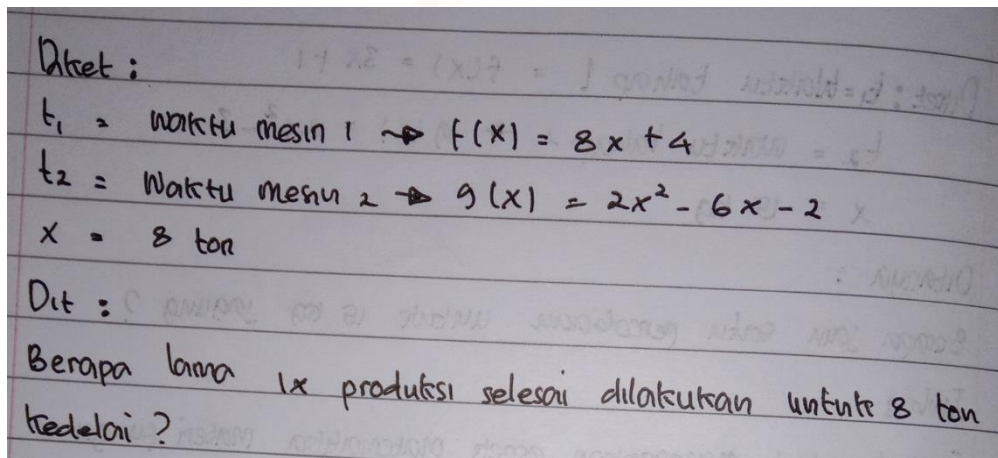 Diket :
t₁ = waktu mesin 1 → f(x) = 8x + 4
t₂ = Waktu mesin 2 → g(x) = 2x² - 6x - 2
x = 8 ton
Dit :
Berapa lama 1x produksi selesai dilakukan untuk 8 ton
kedelai ?